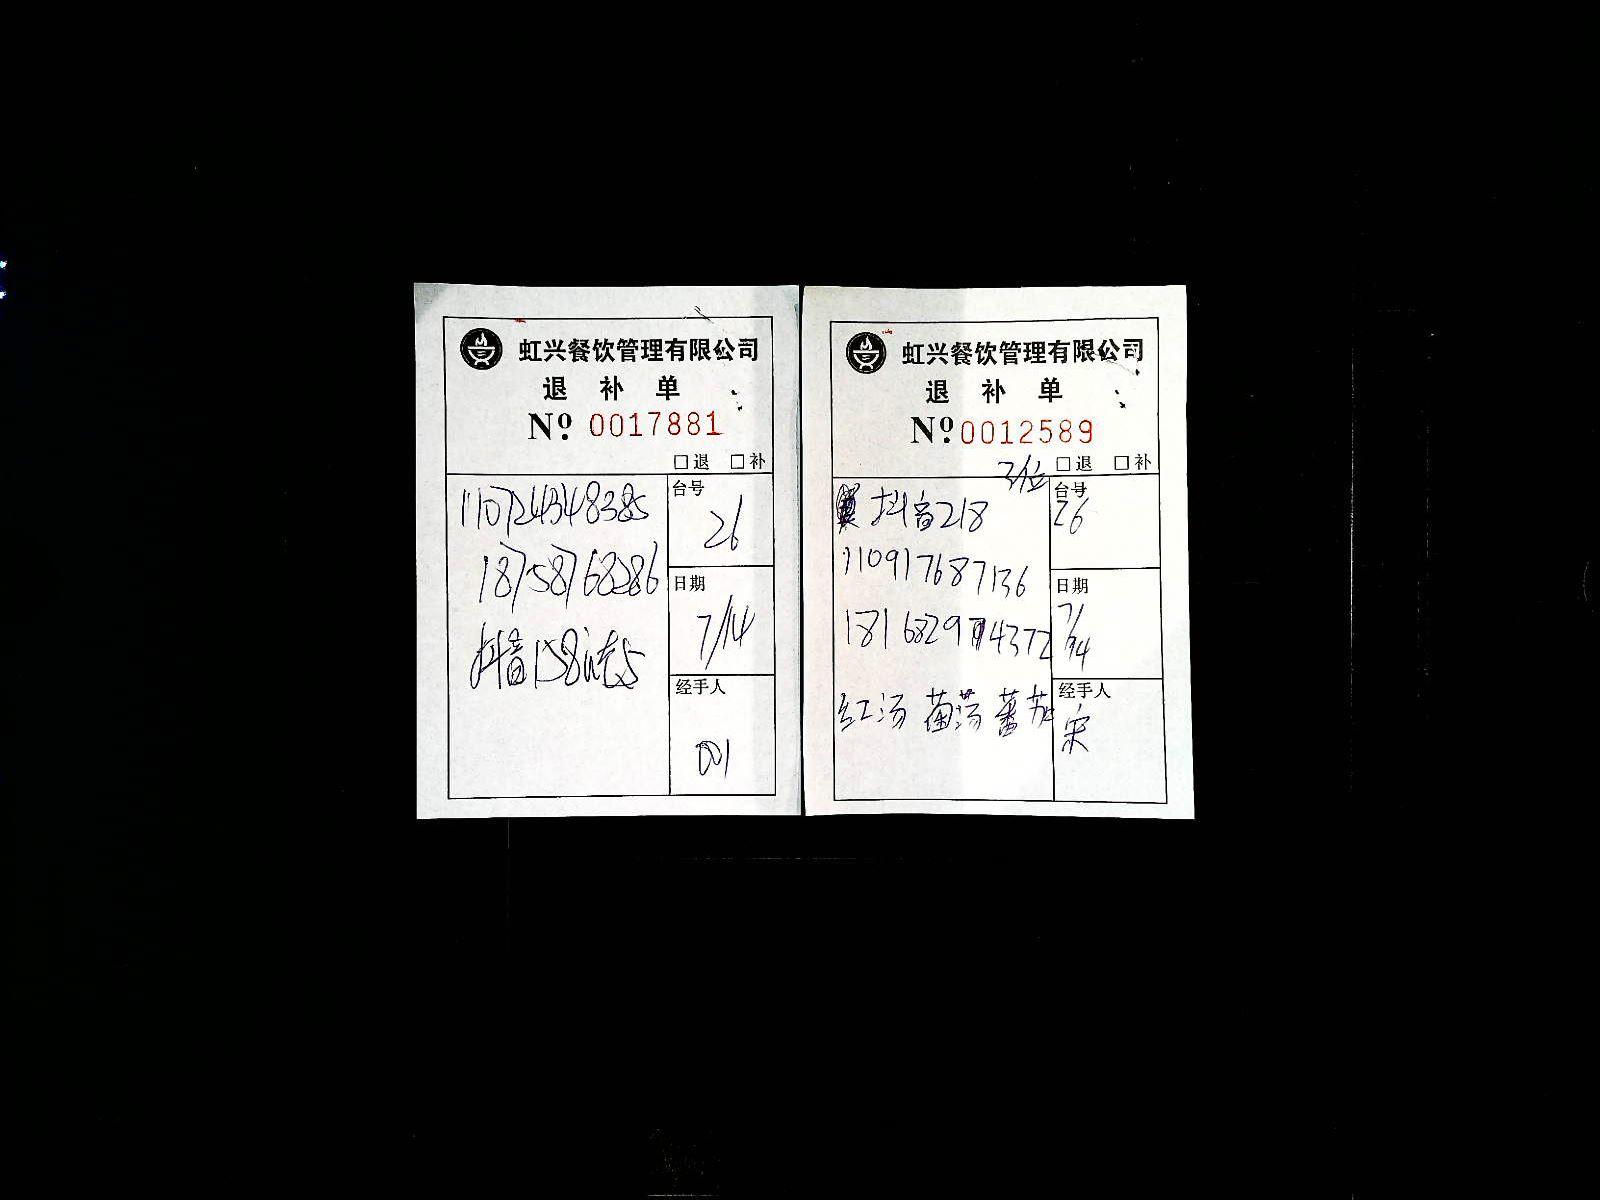 虹兴餐饮管理有限公司
退 补 单
Nº 0017881
□退 □补
110724348385
18758768286
抖音158
台号
26
日期
7/14
经手人
001
虹兴餐饮管理有限公司
退 补 单
Nº 0012589
□退 □补
3位
抖音218
110917687136
1816829 4372
红汤 菌汤 蕃茄
台号
26
日期
7/14
经手人
宋